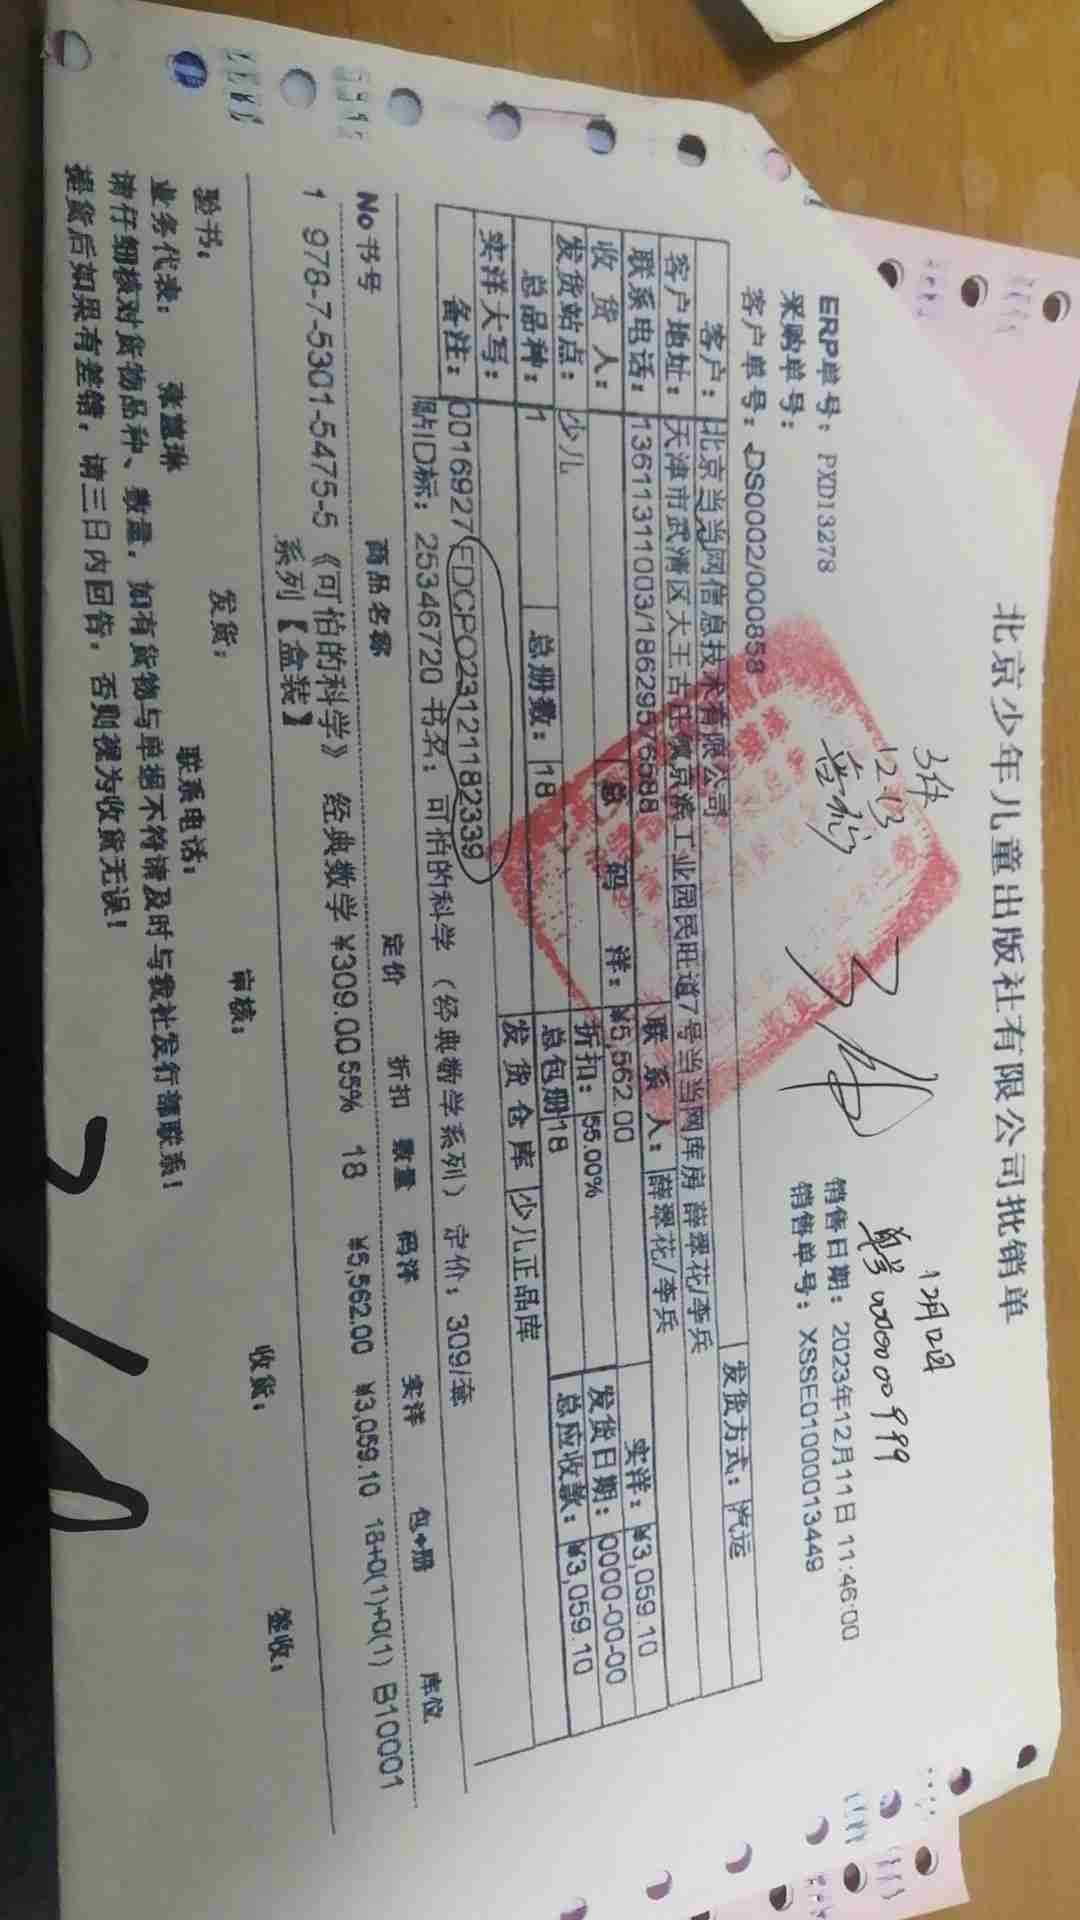 北京少年儿童出版社有限公司批销单
3件
12月12日
12.13
单号 00000 00999
ERP单号：PXD13278
销售日期：2023年12月11日 11:46:00
采购单号：
销售单号：XSSE0100013449
客户单号：DS0002/000858
客户：北京当当网信息技术有限公司 发货方式：汽运
客户地址：天津市武清区大王古庄镇京滨工业园民旺道7号当当网库房 薛翠花/李兵
联系电话：13611311003/18629576588 联系人：薛翠花/李兵
收货人： 总码洋：¥5,562.00 实洋：¥3,059.10
发货站点：少儿 折扣：55.00% 发货日期：0000-00-00
总品种：1 总册数：18 总包册18 总应收款：¥3,059.10
实洋大写： 发货仓库 少儿正品库
备注：0016927EDCPO23121182339
贴ID标：25346720 书名：可怕的科学（经典数学系列）定价：309/套
No 书号 商品名称 定价 折扣 数量 码洋 实洋 包+册 库位
1 978-7-5301-5475-5 《可怕的科学》 经典数学 ¥309.00 55% 18 ¥5,562.00 ¥3,059.10 18+0(1)+0(1) B10001
系列【盒装】
验书： 发货： 审核： 收货： 签收：
业务代表： 张慧琳 联系电话：
请仔细核对货物品种、数量，如有货物与单据不符请及时与我社发行部联系！
提货后如果有差错，请三日内回告，否则视为收货无误！